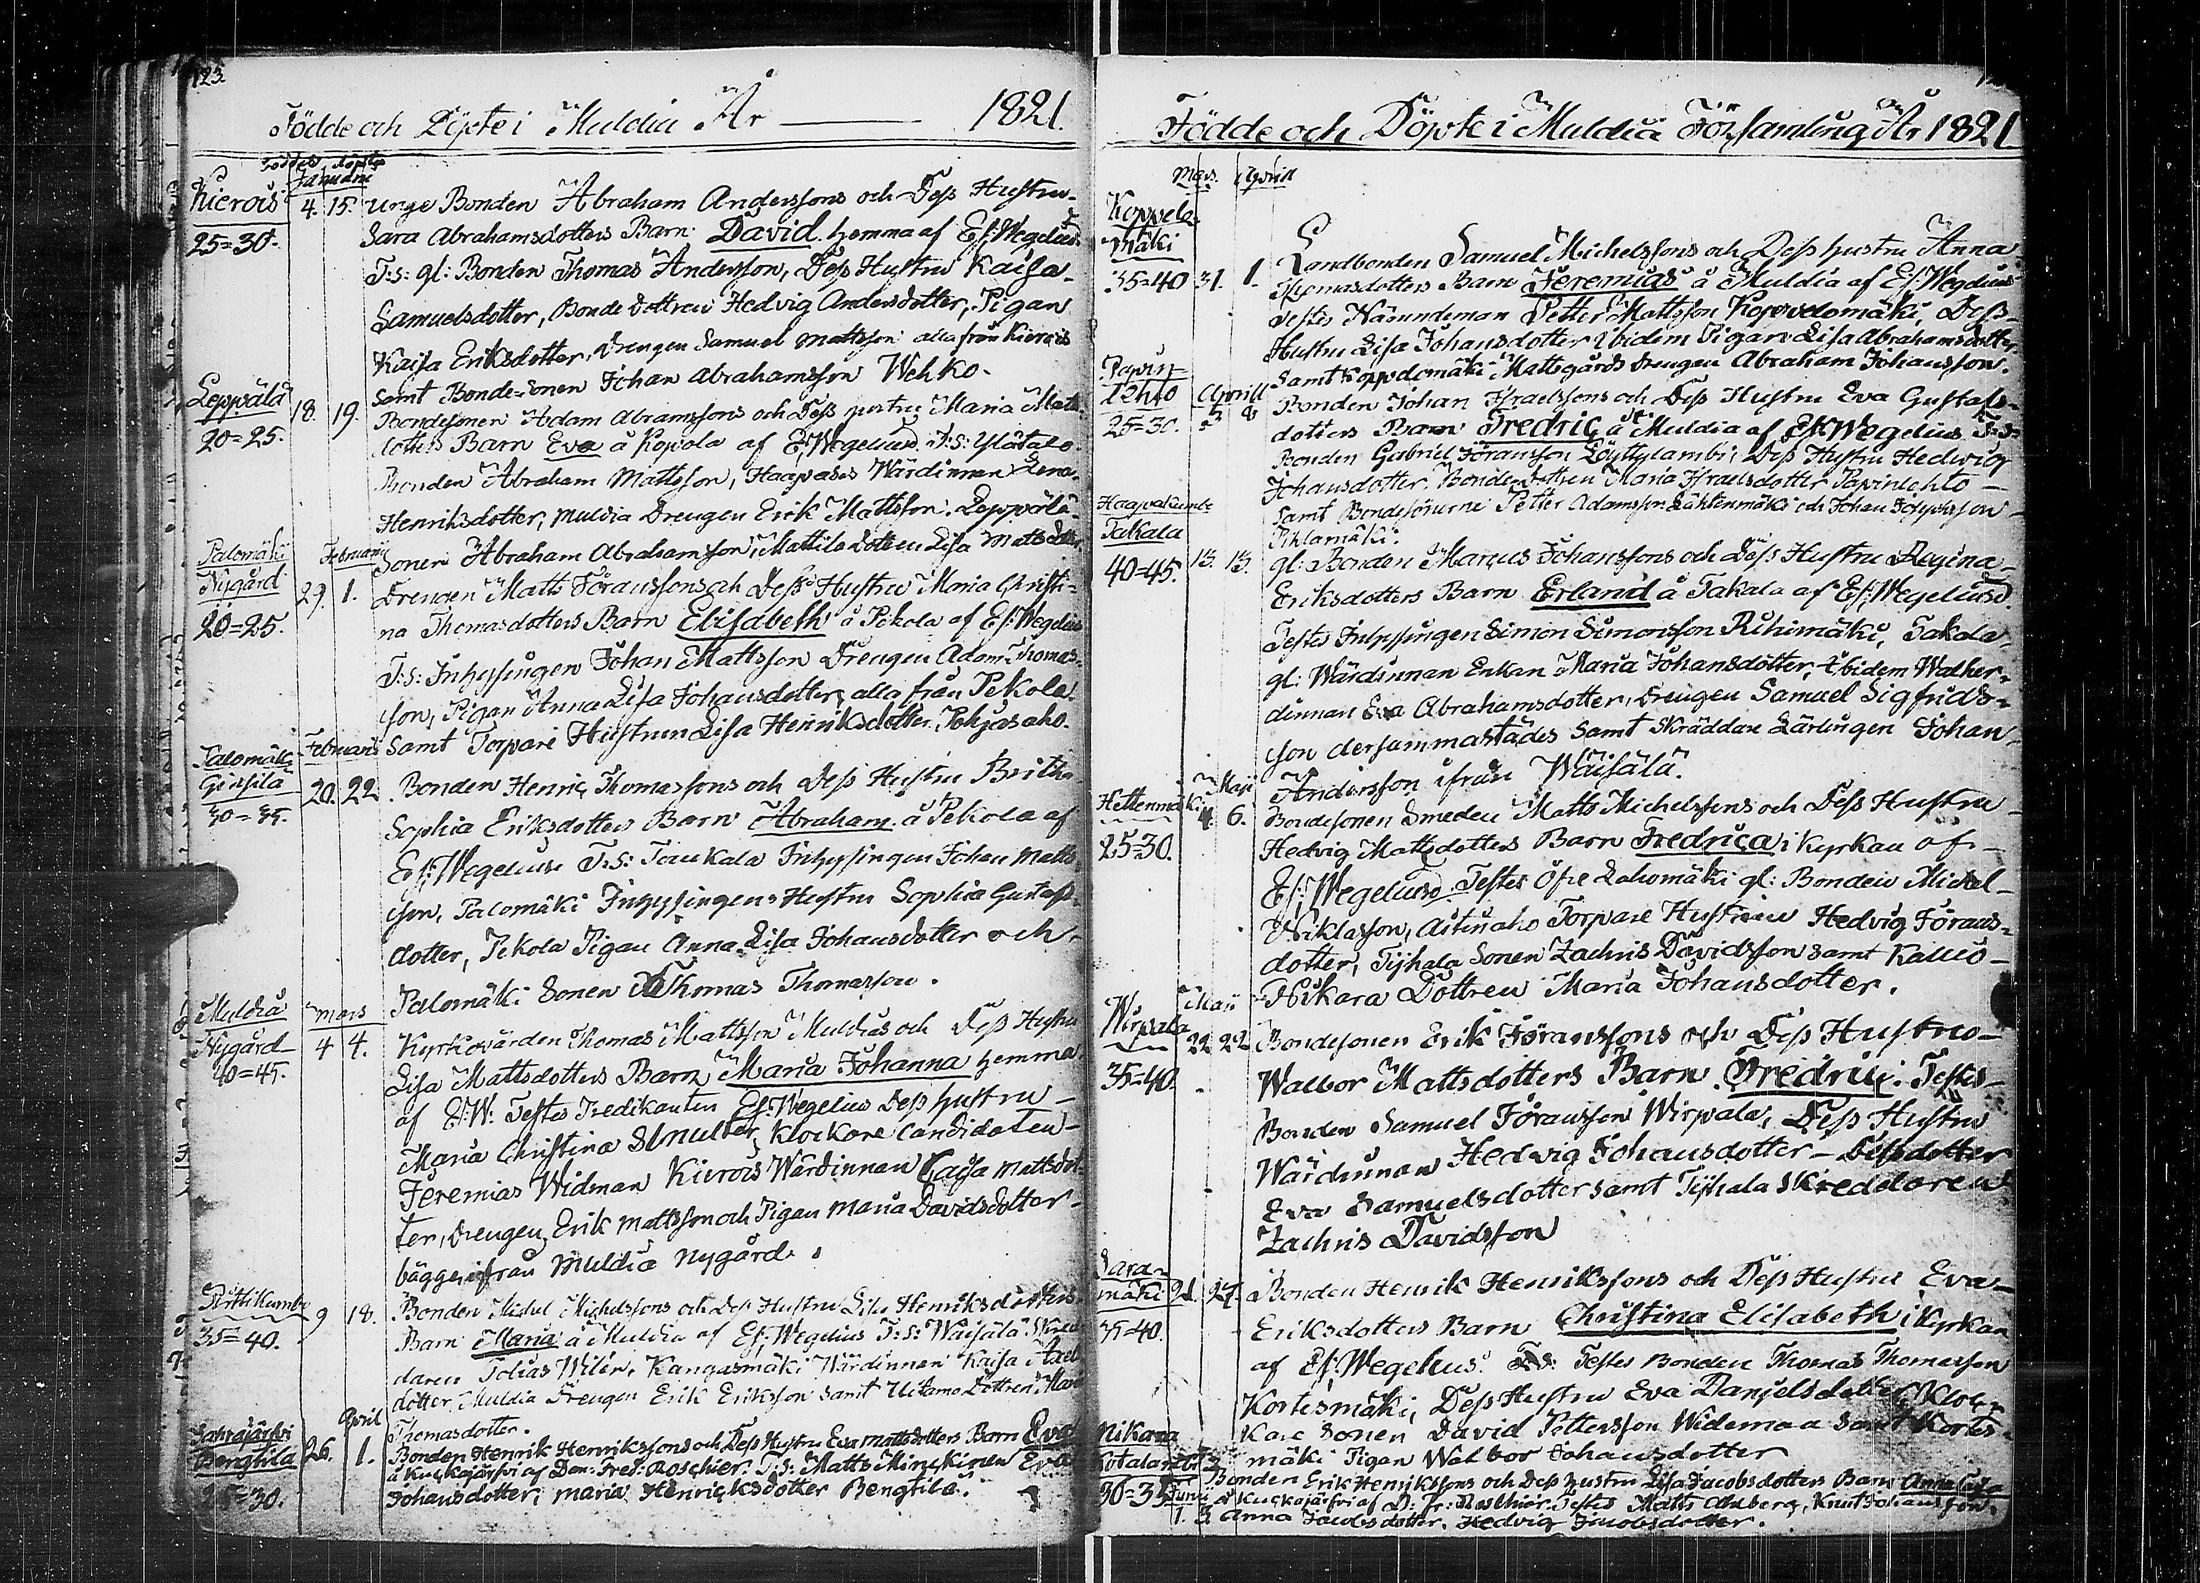 123.
Födde och Döpte i Muldia År 1821.
Födde döpte
Januarii
Kierois 4. 15. unge Bonden Abraham Anderssons och Dess Hustru
25=30. Sara Abrahamsdotters Barn David hemma af Ef: Wegelius
T:s: gl: Bonden Thomas Andersson, Dess Hustru Kaisa
Samuelsdotter, Bonde dottren Hedvig Andersdotter, Pigan
Kaisa Eriksdotter, Drengen Samuel Mattsson alla från Kierois
samt Bonde-sonen Johan Abrahamsson Wehko.
Leppälä 18. 19. Bondesonen Adam Abramssons och Dess hustru Maria Matts
20=25. dotters Barn Eva å Kopola af E: Wegelius. T:s: Ylätalo
Bonden Abraham Mattsson, Haapases Wärdinnan Lena
Henriksdotter, Muldia Drengen Erik Mattsson. Leppälä
Sonen Abraham Abrahamsson, Mattila dottren Lisa Mattsdotter
Palomäki Februarii
Nygård 29. 1. Drengen Matts Göranssons och Dess Hustru Maria Christi-
20=25. na Thomasdotters Barn Elisabeth å Pekola af Ef: Wegelius
T:s: Inhysingen Johan Mattsson Drengen Adam Thomas-
son, Pigan Anna Lisa Johansdotter, alla från Pekola
samt Torpare Hustrun Lisa Henriksdotter, Pohjasaho.
Palomäki Februarii
20. 22. Bonden Henric Thomassons och Dess Hustru Britha
30=35. Sophia Eriksdotters Barn Abraham å Pekola af
Ef: Wegelius T:s: Toukala Inhysingen Johan Matts-
son, Palomäki Inhysingens Hustru Sophia Gustafs-
dotter, Pekola Pigan Anna Lisa Johansdotter och
Palomäki Sonen Thomas Thomasson.
Muldia Mars
Nygård 4 4. Kyrkovärden Thomas Mattsson Muldias och Dess Hustru
40=45. Lisa Mattsdotters Barn Maria Johanna hemma
af E:W: Testes Predikanten Ef: Wegelius Dess hustru
Maria Christina Klockare Candidaten
Jeremias Widman Kierois Wärdinnan Caisa Mattsdot-
ter, Drengen Erik Mattsson och Pigan Maria Davidsdotter
bägge ifrån Muldia nygård.
9 18. Bonden Michel Michelssons och Dess Hustru Lisa Henriksdotters
35=40. Barn Maria å Muldia af Ef: Wegelius T:s: Wäisälä Skred-
daren Tobias Wilén, Kangasmäki Wärdinnan Kaisa Axels
dotter, Muldia Drengen Erik Eriksson samt Uitamo Dottren Maria
Thomasdotter.
April
Bengtila 26. 1. Bonden Henrik Henrikssons och Dess Hustru Eva Mattsdotters Barn Eva
å Kuckajärfvi af Dom: Fred: Roschier. T:s: Matts Minckinen Eva
25=30. Johansdotter, maria Henricksdotter Bengtila.
Födde och Döpte i Muldia Församling År 1821
Mars. April
Koppelo-
mäki Landbonden Samuel Michelssons och Dess hustru Anna
35=40 31. 1. Thomasdotters Barn Jeremias å Muldia af Ef: Wegelius
Testes Nämndeman Petter Mattsson Koppelomäki, Dess
Hustru Lisa Johansdotter ibidem Pigan Lisa Abrahamsdotter
samt Koppelomäki Mattsgårds drengen Abraham Johansson.
Papin-
lehto April
25=30. 5 8 Bonden Johan Israelssons och Dess Hustru Eva Gustafs-
dotters Barn Fredric å Muldia af Ef: Wegelius T:s:
Bonden Gabriel Göransson Löyttylambi, Dess Hustru Hedwig
Johansdotter. Bonde dottren Maria Israelsdotter Papinlehto
samt Bondesönerne Petter Adamsson Lähtenmäki och Johan Josephsson
Piklamäki.
Haapakumbu
Takala 13. 13. gl: Bonden Marcus Johanssons och Dess Hustru Regina
40=45. Eriksdotters Barn Erland å Takala af Ef: Wegelius.
Testes Inhysingen Simon Simonsson Riihimäki, Takala
gl: Wärdinnan Enkan Maria Johansdotter, ibidem Wather-
dinnan Eva Abrahamsdotter, Drengen Samuel Sigfrids-
son dersammastädes samt Skräddare Lärlingen Johan
Andersson ifrån Wäisälä.
Maji
Hettenmäki 4. 6. Bondesonen Smeden Matts Michelssons och Dess Hustru
25=30. Hedvig Mattsdotters Barn Fredrica i Kyrkan af
Ef: Wegelius. Testes Öfre Lahomäki gl: Bonden Michel
Niklasson, Aitinaho Torpare Hustrun Hedvig Görans-
dotter, Tyhala Sonen Zachris Davidsson samt Kallio-
Nikara Dottren Maria Johansdotter.
Maji
Wirpala 22 22 Bondesonen Erik Göranssons och Dess Hustru
35=40. Walbor Mattsdotters Barn Fredric. Testes
Bonden Samuel Göransson Wirpala, Dess Hustru
Wärdinnan Hedvig Johansdotter - Dess dotter
Eva Samuelsdotter samt Tyhala Skreddaren
Zachris Davidsson
Sara-
mäki 21. 27. Bonden Henrik Henrikssons och Dess Hustru Eva
35=40. Eriksdotters Barn Christina Elisabeth i Kyrkan
af Ef: Wegelius. Testes Bonden Thomas Thomasson
Kortesmäki, Dess Hustru Eva Danjelsdotter, Kloc-
kare Sonen David Pettersson Wideman samt Kortes-
mäki Pigan Walbor Johansdotter
Nikara
30=35 Juni Bonden Erik Henrikssons och Dess hustru Lisa Jacobsdotters Barn Anna Lisa
å Kuckajärfvi af D: Fr: Roschier. Testes Matts Ahlberg, Knut Johansson,
1. 3 Anna Jacobsdotter, Hedvig Jacobsdotter.